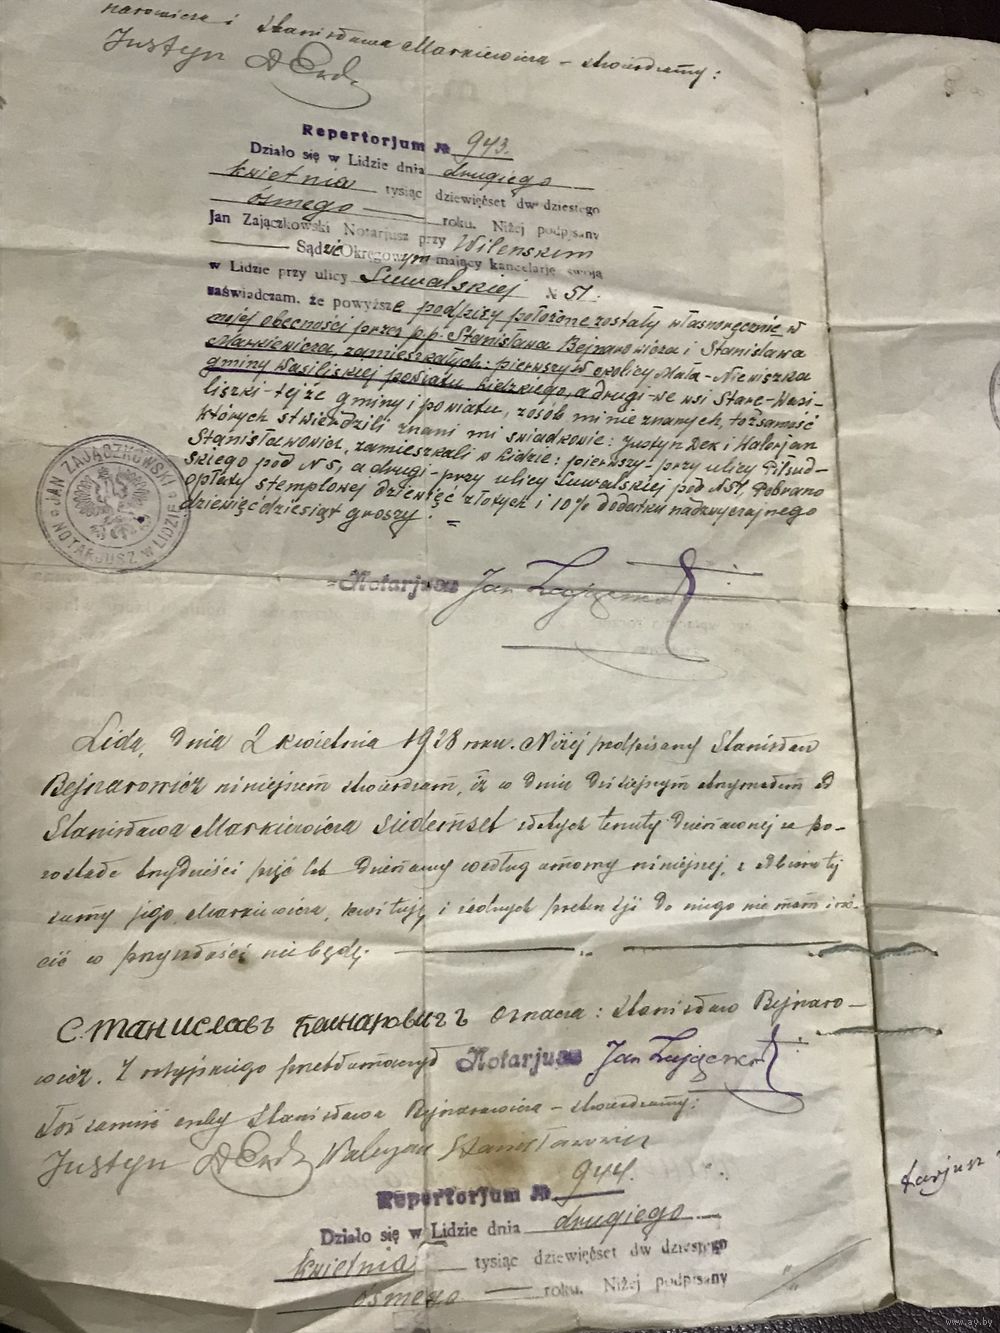 narowicza i Stanisława Markiewicza – stwierdzamy:
Justyn
Repertorjum № 943.
Działo się w Lidzie dnia drugiego
kwietnia tysiąc dziewięćset dwudziestego
ósmego roku. Niżej podpisany
Jan Zajączkowski Notarjusz przy Wileńskim
Sądzie Okręgowym mający kancelarję swoją
w Lidzie przy ulicy Suwalskiej № 51.
zaświadczam, że powyższe podpisy położone zostały własnoręcznie w
mojej obecności przez p.p. Stanisława Bejnarowicza i Stanisława
Markiewicza, zamieszkałych: pierwszy w okolicy Mała-Niewiszka
gminy Wasiliskiej powiatu Lidzkiego, a drugi - we wsi Stare-Wasi-
liszki - tejże gminy i powiatu, z osób mi nie znanych, tożsamość
których stwierdzili znani mi świadkowie: Justyn Dek i Walerjan
Stanisławowicz, zamieszkali w Lidzie: pierwszy - przy ulicy Piłsud-
skiego pod № 5, a drugi - przy ulicy Suwalskiej pod № 51. Pobrano
opłaty stemplowej dziewięć złotych i 10% dodatku nadzwyczajnego
dziewięćdziesiąt groszy. =
JAN ZAJĄCZKOWSKI
NOTARJUSZ w LIDZIE
Notarjusz Jan
Lida, dnia 2 kwietnia 1928 roku. Niżej podpisany Stanisław
Bejnarowicz niniejszem stwierdzam, iż w dniu dzisiejszym otrzymałem od
Stanisława Markiewicza siedemset złotych tenuty dzierżawnej za po-
zostałe trzydzieści pięć lat dzierżawy według umowy niniejszej, z odbioru tej
sumy jego, Markiewicza, kwituję i żadnych pretensji do niego nie mam i roś-
cić w przyszłości nie będę.
Станиславъ Бейнаровичъ oznacza: Stanisław Bejnaro-
wicz. Z rosyjskiego przetłumaczył Notarjusz Jan
Tożsamość osoby Stanisława Bejnarowicza – stwierdzamy:
Justyn Walerjan Stanisławowicz
Repertorjum № 944.
Działo się w Lidzie dnia drugiego
kwietnia tysiąc dziewięćset dwudziestego
ósmego roku. Niżej podpisany
tarjusz
www.ay.by